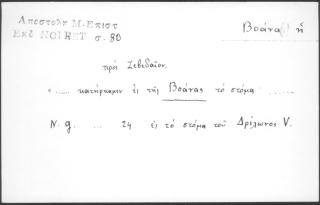 Αποστολη Μ-Επιστ
Εκδ NOIRET σ. 80
Βοάνα ἡ
πρός Ζεβεδαῖον.
« ...... κατήρκαμεν εἰς τῆς Βοάνας τό στόμα ......
Ν. g ...... 24 εἰς τό στόμα τοῦ Δρίλωνος V.